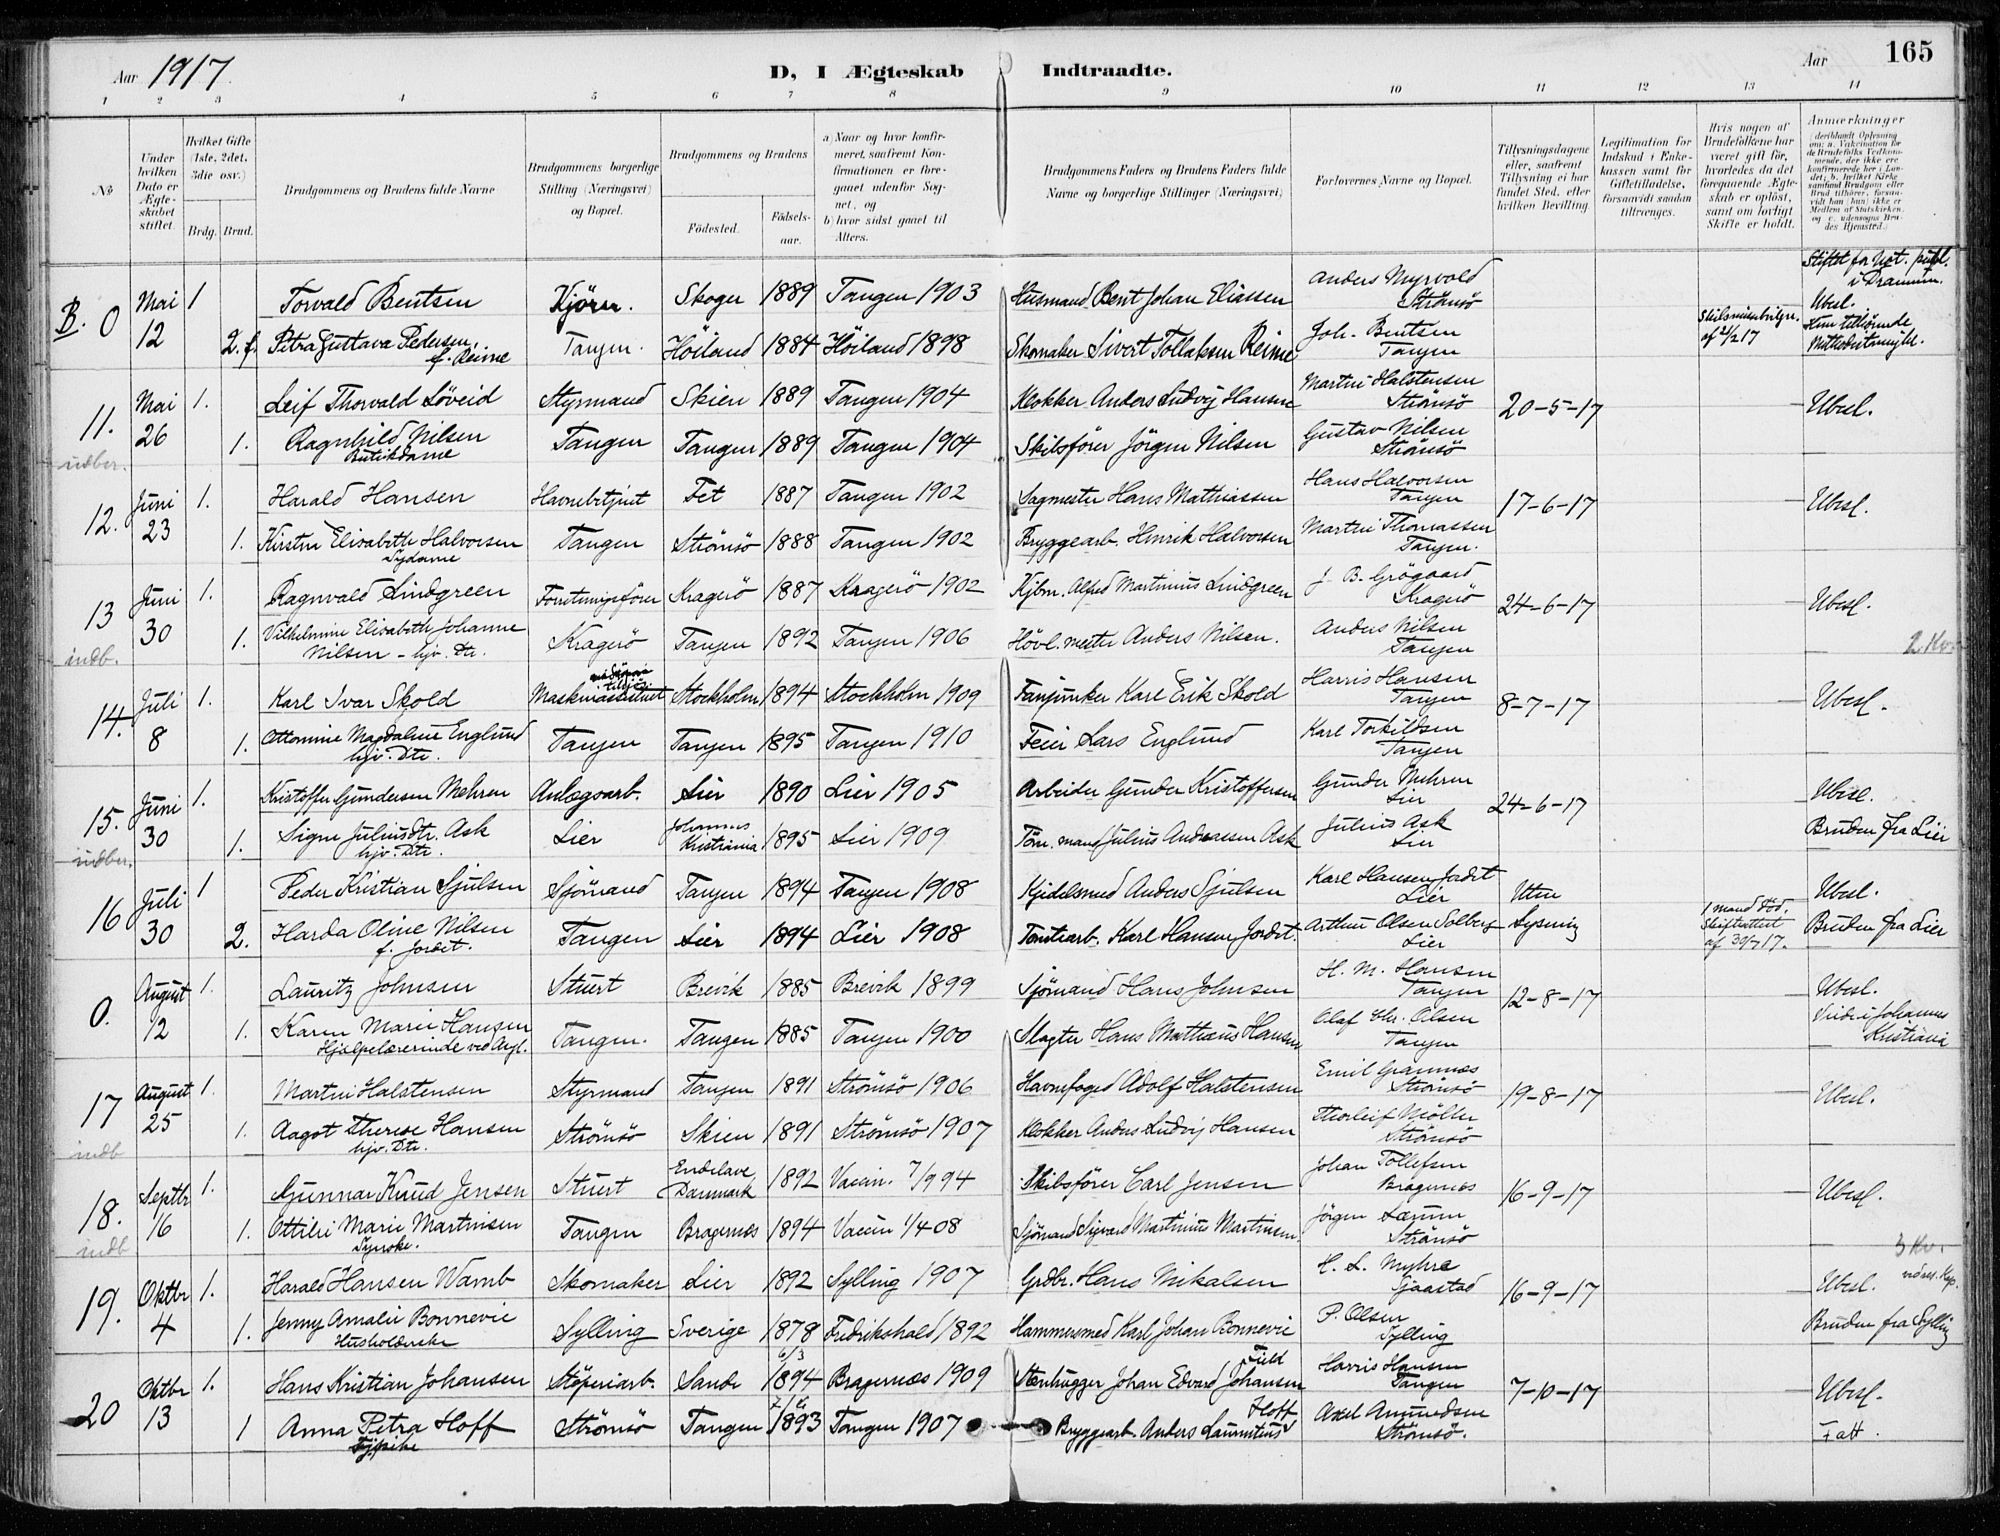 Aar 1917. D, I Ægteskab Indtraadte. Aar 165
1 2 3 4 5 6 7 8 9 10 11 12 13 14
No
Under hvilken Dato er Ægteskabet stiftet
Hvilket Gifte (1ste, 2det, 3die osv.)
Brdg. Brud.
Brudgommens og Brudens fulde Navne
Brudgommens borgerlige Stilling (Næringsvei) og Bopæl.
Brudgommens og Brudens
Fødested. Fødsels-aar.
a) Naar og hvor konfirmeret, saafremt Konfirmationen er foregaaet udenfor Sognet, og
b) hvor sidst gaaet til Alters.
Brudgommens Faders og Brudens Faders fulde Navne og borgerlige Stillinger (Næringsvei)
Forlovernes Navne og Bopæl.
Tillysningsdagene eller, saafremt Tillysning ei har fundet Sted, efter hvilken Bevilling.
Legitimation for Indskud i Enkekassen samt for Giftetilladelse, forsaavidt saadan tiltrænges.
Hvis nogen af Brudefolkene har været gift før, hvorledes da det foregaaende Ægteskab er opløst, samt om lovligt Skifte er holdt.
Anmærkninger (deriblandt Oplysning om: a. Vakcination for de Brudefolks Vedkommende, der ikke ere konfirmerede her i Landet; b. hvilket Kirkesamfund Brudgom eller Brud tilhører, forsaavidt han (hun) ikke er Medlem af Statskirken, og c. udensogns Brudes Hjemsted.)
B. 0 Mai 12 1 Torvald Bentsen Kjörer. Skoger 1889 Tangen 1903 Husmand Bent Johan Eliassen Anders Myrvold Strömsö Stiftet for Not. publ. i Drammen. Ubesl.
2. f. Petra Gustava Pedersen f. Reime Tangen. Höiland 1884 Höiland 1898 Skomaker Sivert Tollaksen Reime Joh. Bentsen Tangen af 2/2 17 Hun tilhörende
11. Mai 26 1. Leif Thorvald Löveid Styrmand Skien 1889 Tangen 1904 Klokker Anders Ludvig Hansen Martin Halstensen Strömsö 20-5-17 Ubesl.
udbet. 1. Ragnhild Nilsen Butikdame Tangen Tangen 1889 Tangen 1904 Skibsförer Jörgen Nilsen Gustav Nilsen Strömsö
12. Juni 23 1. Harald Hansen Havnebetjent Fet 1887 Tangen 1902 Sagmester Hans Mathiassen Hans Halvorsen Tangen 17-6-17 Ubesl.
1. Kirstin Elisabeth Halvorsen Sydame Tangen Strömsö 1888 Tangen 1902 Bryggearb. Henrik Halvorsen Martin Thomassen Tangen.
13 Juni 30 1. Ragnvald Lindgreen Forretningsförer Kragerö 1887 Kragerö 1902 Kjbm. Alfred Martinius Lindgreen J. B. Grögaard Kragerö 24-6-17 Ubesl.
indb. 1. Vilhelmine Elisabeth Johanne Nilsen - hjv. Dtr. Kragerö Tangen 1892 Tangen 1906 Hövl.mester Anders Nilsen. Anders Nilsen Tangen 2 Kv.
14. Juli 8 1. Karl Ivar Skold Stockholm 1894 Stockholm 1909 Fanjunker Karl Erik Skold Harris Hansen Tangen 8-7-17 Ubesl.
1. Ottomine Magdalene Englund hjv. Dtr. Tangen Tangen 1895 Tangen 1910 Feier Lars Englund Karl Torkildsen Tangen
15. Juni 30 1. Kristoffer Gundersen Mehren Anlægsarb. Lier 1890 Lier 1905 Arbeider Gunder Kristoffersen Gunder Mehren Lier 24-6-17 Ubesl.
1. Signe Juliusdtr. Ask hjv. Dtr. Lier Johannes Kristiania 1895 Lier 1909 Töm.mand Julius Andreassen Ask Julius Ask Lier Bruden fra Lier
16 Juli 30 1 Peder Kristian Sjulsen Sjömand Tangen 1894 Tangen 1908 Kjedelsmed Anders Sjulsen Karl Hansen Jordet Lier Uten Lysning Ubesl.
2. Harda Oline Nilsen f. Jordet. Tangen Lier 1894 Lier 1908 Karl Hansen Jordet. Arthur Olsen Solberg Lier 1 mand död. Skifteattest af 30/7 17. Bruden fra Lier
0. August 12 1. Lauritz Johnsen Stuert Brevik 1885 Brevik 1899 Sjömand Hans Johnsen H. M. Hansen Tangen 12-8-17 Ubesl.
1. Karen Marie Hansen Hjælpelærerinde ved Asyl. Tangen. Tangen 1885 Tangen 1900 Slagter Hans Mathæus Hansen Olaf Chr. Olsen Tangen Viede i Johannes Kristiania
17 August 25 1. Martin Halstensen Styrmand Tangen 1891 Strömsö 1906 Havnefoged Adolf Halstensen Emil Gramnæs Strömsö 19-8-17 Ubesl.
indb 1. Aagot Therese Hansen hjv. Dtr. Strömsö Skien 1891 Strömsö 1907 Klokker Anders Ludvig Hansen Thorleif Möller Strömsö
18. Septbr 16 1. Gunnar Knud Jensen Stuert Endelave Danmark 1892 Vaccin. 7/19 94 Skibsförer Carl Jensen Johan Tollefsen Bragernes 16-9-17 Ubesl.
indb. 1. Ottilie Marie Martinsen Tangen Bragernæs 1894 Vaccin 1/4 08 Sjömand Sigvard Martinius Martinsen. Jörgen Larum Strömsö
19. Oktbr 4 1. Harald Hansen Wamb Skomaker Lier 1892 Sylling 1907 Grdbr. Hans Mikalsen H. L. Myhre Sjaastad 16-9-17 Ubesl. 3 Kv.
1. Jenny Amalie Bonnevie Sylling Sverige 1878 Fredrikshald 1892 Hammersmed Karl Johan Bonnevie P. Olsen Sylling Bruden fra Sylling
20 Oktbr 13 1. Hans Kristian Johansen Stöperiarb. Sande 6/3 1894 Bragernæs 1909 Stenhugger Johan Edvard Johansen Harris Hansen Tangen 7-10-17 Ubesl.
1 Anna Petra Hoff Strömsö Tangen 1893 Tangen 1907 Bryggearb. Anders Laurentius Hoff Axel Amundsen Strömsö. Fatt.